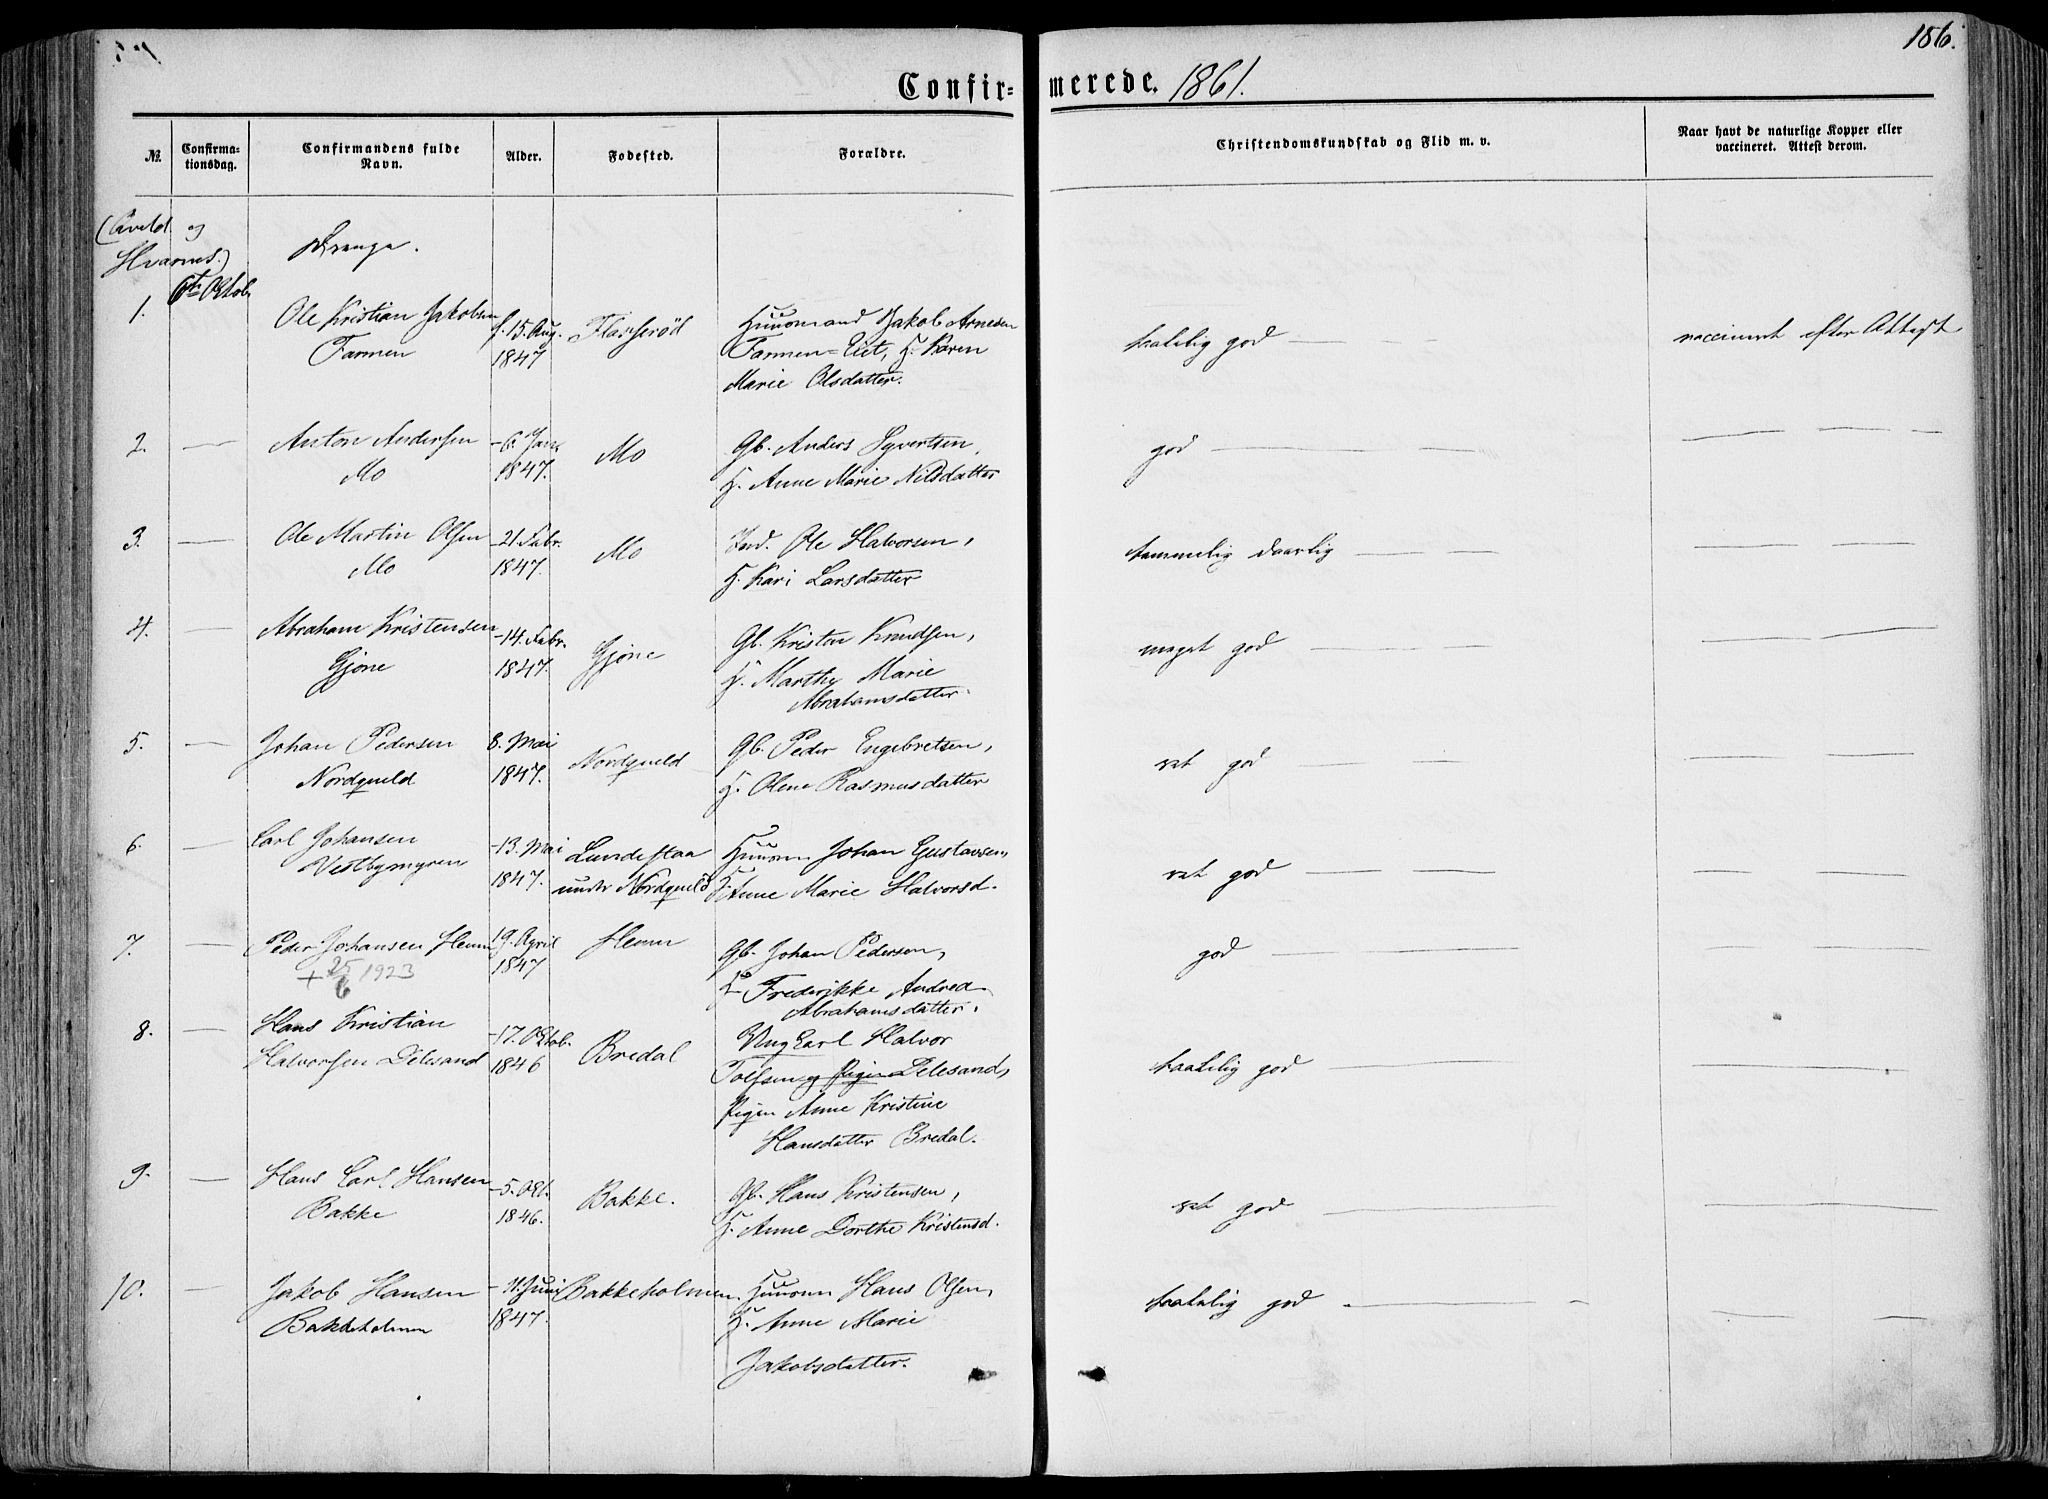 186.
Confirmerede. 1861.
No.
Confirmationsdag.
Confirmandens fulde Navn.
Alder.
Fødested.
Forældre.
Christendomskundskab og Flid m. v.
Naar havt de naturlige Kopper eller vaccineret. Attest derom.
(Kveld og
Hvarnes.)
Drenge.
6te Oktob.
1.
Ole Kristian Jakobsen
Farmen
f. 15. Aug.
1847
Huusmand Jakob Arnesen
Farmen=Eiet, H. Karen
Marie Olsdatter.
taalelig god — —
vaccineret efter Attest
2. —
Anton Andersen
Mo
- 6. Janr
1847.
Mo
Gb. Anders Syvertsen,
H. Anne Marie Nilsdatter
god — — —
— — —
3. —
Ole Martin Olsen
Mo
- 21. Febr.
1847.
Mo
Ind. Ole Halvorsen,
H. Kari Larsdatter
temmelig daarlig — —
— —
4. —
Abraham Kristensen
Gjøne
- 14. Febr.
1847.
Gjøne
Gb. Kristen Knudsen,
H. Marthe Marie
Abrahamsdatter.
meget god — — —
— —
5. —
Johan Pedersen
Nordqveld
8. Mai
1847.
Nordqveld
Gb. Peder Engebretsen,
H. Olene Rasmusdatter
ret god — —
— —
6. —
Carl Johansen
Vestbymyren
- 13. Mai
1847.
Lundestaa
under Nordqveld
Huusm Johan Gustavsen,
H. Anne Marie Halvorsd.
ret god — — —
— — —
7. —
Peder Johansen Hemm
+ 25/6 1923
19. April
1847
Hemm
Gb. Johan Pedersen,
H. Frederikke Andrea
Abrahamsdatter.
god — —
8. —
Hans Kristian
Halvorsen Delesand
- 17. Oktob.
1846
Bredal
Ungkarl Halvor
Tolfsen og Pigen Delesand,
Pigen Anne Kristine
Hansdatter Bredal.
taalelig god — —
9. —
Hans Carl Hansen
Bakke
- 5. Okt.
1846.
Bakke.
Gb. Hans Kristensen,
H. Anne Dorthe Kristensd.
ret god — —
—
10. —
Jakob Hansen
Bakkeholmen
- 11. Juni
1847.
Bakkeholmen
Huusm Hans Olsen,
H. Anne Marie
Jakobsdatter.
taalelig god — —
— —